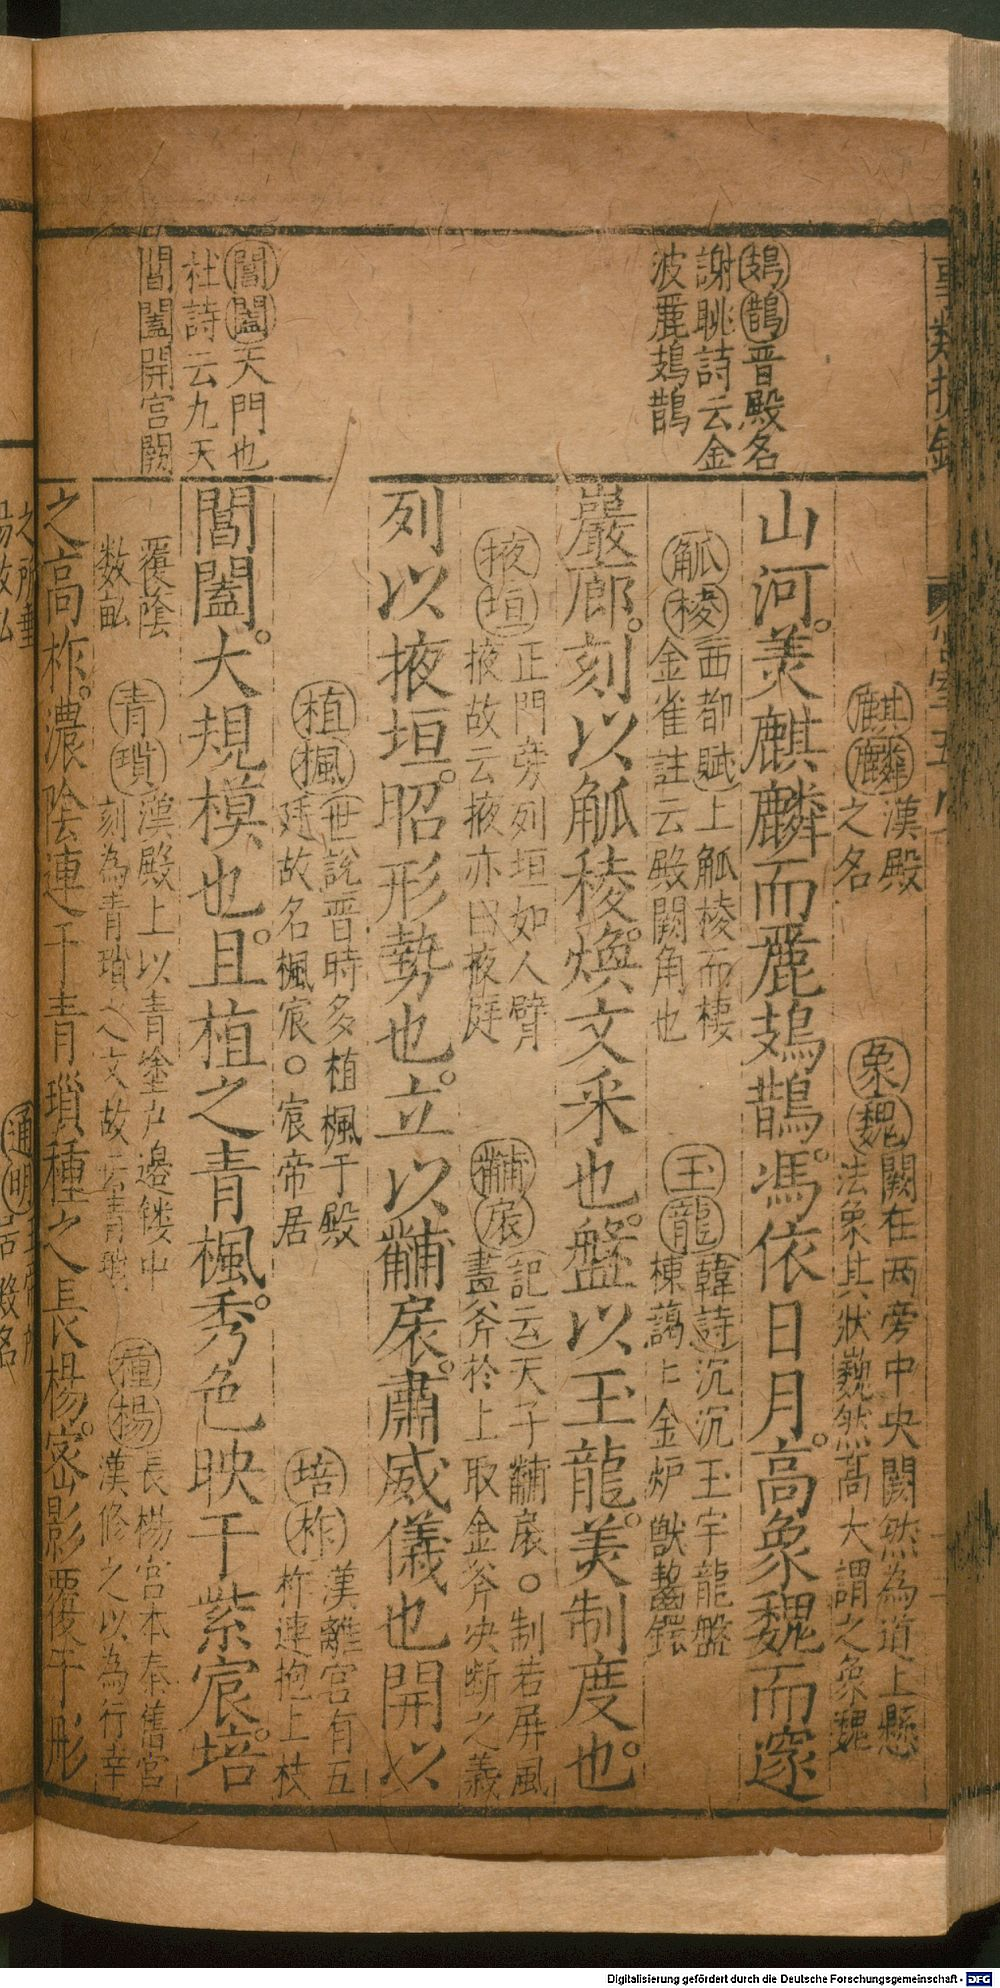 鳷鵲晋殿名
謝眺詩云金
波麗鳷鵲
閶闔天門也
杜詩云九天
閶闔開宮闕
麒麟漢殿
之名
象魏闕在两旁中央闕然為道上懸
法象其狀巍然高大謂之象魏
山河。羙麒麟而麗鳷鵲。馮依日月。高象魏而邃
觚棱西都賦上觚棱而棲
金雀註云殿闕角也
玉龍韓詩沉沉玉宇龍盤
棟藹上金炉獣齧鐶
巖廊。刻以觚稜。煥文采也。盤以玉龍。羙制度也。
掖垣正門旁列垣如人臂
掖故云掖亦曰掖庭
黼扆記云天子黼扆○制若屏風
畫斧於上取金斧决斷之義
列以掖垣。昭形勢也。立以黼扆。肅威儀也開以
植楓世說晋時多植楓于殿
廷故名楓宸○宸帝居
培柞漢離宮有五
柞連抱上枝
閶闔。大規模也。且植之青楓秀。色映于紫宸。培
覆陰
数畆
青瑣漢殿上以青塗户邊鏤中
刻為青瑣之文故云青瑣
種楊長楊宮本秦舊宮
漢修之以為行幸
之高柞。濃陰連于青瑣種之長楊。密影覆于彤
之所
通明
殿名
Digitalisierung gefördert durch die Deutsche Forschungsgemeinschaft - DFG